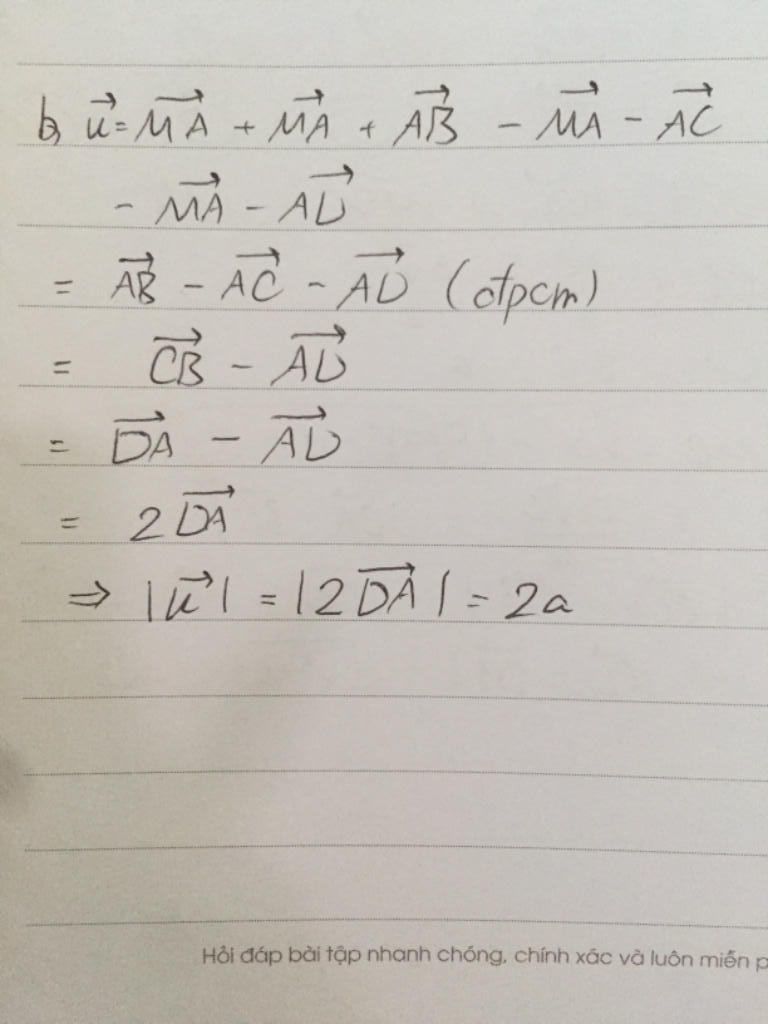 b, u⃗ = MA⃗ + MA⃗ + AB⃗ - MA⃗ - AC⃗
- MA⃗ - AD⃗
= AB⃗ - AC⃗ - AD⃗ (đpcm)
= CB⃗ - AD⃗
= DA⃗ - AD⃗
= 2DA⃗
⇒ |u⃗| = |2DA⃗| = 2a
Hỏi đáp bài tập nhanh chóng, chính xác và luôn miễn p